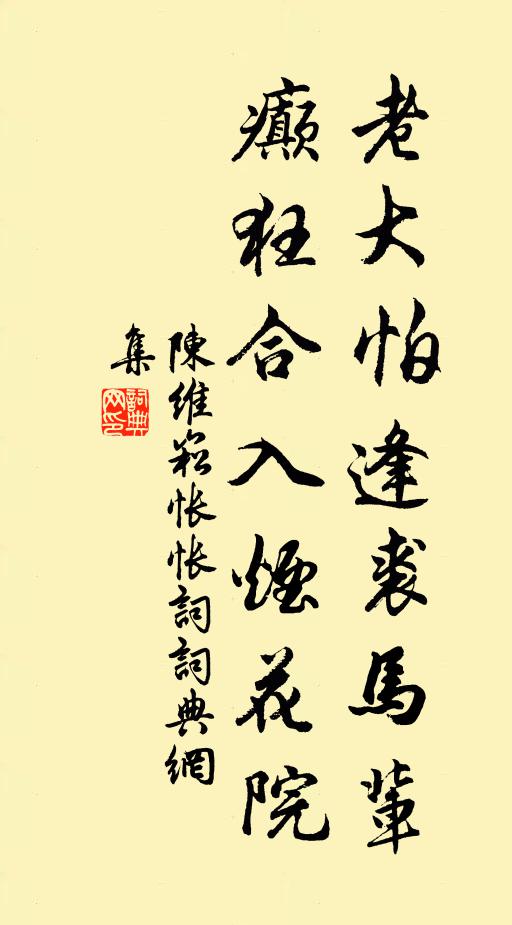 老大怕逢裘馬輩
癲狂合入煙花院
陳維崧悵悵詞詞典網
集
詞典网印